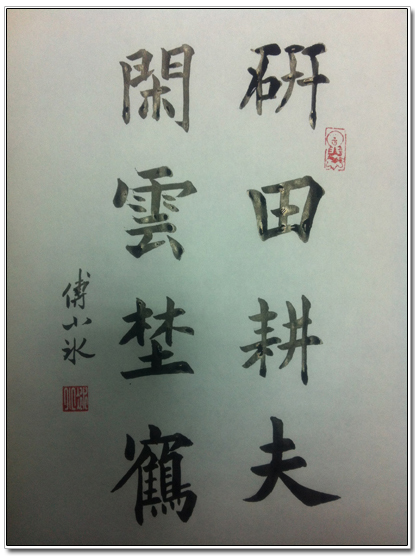 研田耕夫
閑雲埜鶴
傅小冰